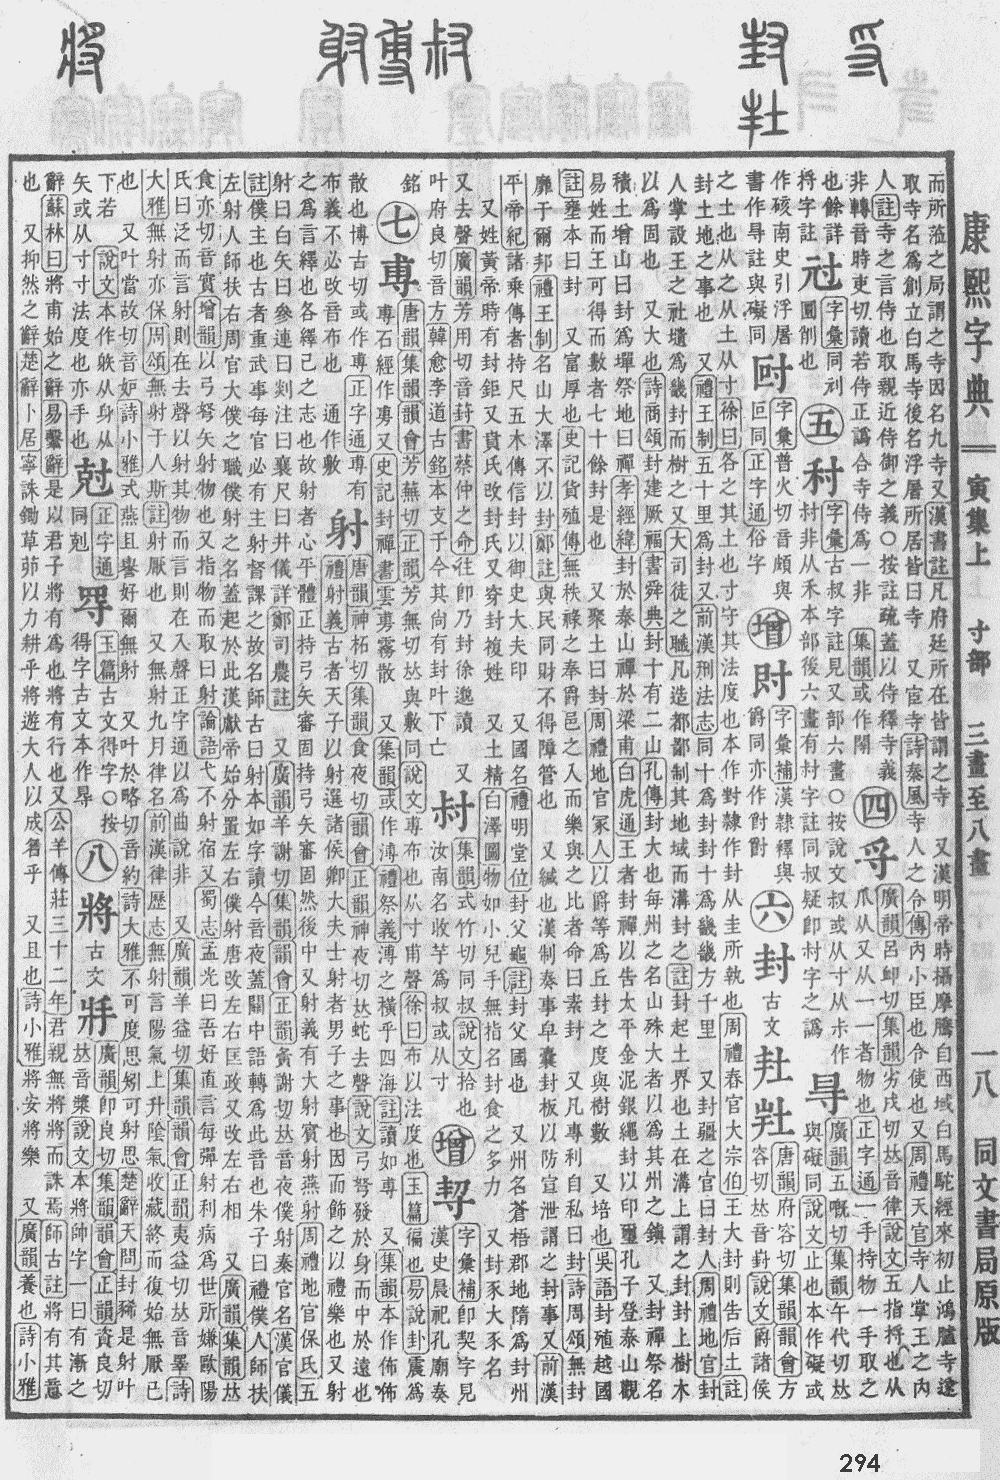 康熙字典 寅集上 寸部 三畫至八畫 一八 同文書局原版
而所涖之局謂之寺因名九寺又漢書註凡府廷所在皆謂之寺 又漢明帝時攝摩騰自西域白馬駝經來初止鴻臚寺遂
取寺名爲創立白馬寺後名浮屠所居皆曰寺 又宦寺詩秦風寺人之令傳內小臣也令使也又周禮天官寺人掌王之內
人註寺之言侍也取親近侍御之義○按註疏蓋以侍釋寺義
非轉音時吏切讀若侍正譌合寺侍爲一非 集韻或作閞
四 寽 廣韻呂䘏切集韻劣戌切𠀤音律說文五指捋也从
爪从又从一一者物也正通一手持物一手取之
也餘詳捋字註
字彙同刓圓削也
五 字彙古叔字註見又部六畫○按說文叔或从寸从尗作
村非从禾本部後六畫有村字註同叔疑卽村字之譌
㝵 廣韻五嘅切集韻午代切𠀤與礙同說文止也本作礙或
作硋南史引浮屠書作㝵註與礙同
字彙普火切音頗與叵同正字通俗字
增 字彙補漢隸釋與爵同亦作
六 封 古文 唐韻府容切集韻韻會方容切𠀤音葑說文爵諸侯
之土也从之从土从寸徐曰各之其土也寸守其法度也本作對隸作封从圭所執也周禮春官大宗伯王大封則告后土註
封土地之事也 又禮王制五十里爲封又前漢刑法志同十爲封封十爲畿畿方千里 又封疆之官曰封人周禮地官封
人掌設王之社壝爲畿封而樹之又大司徒之職凡造都鄙制其地域而溝封之註封起土界也土在溝上謂之封封上樹木
以爲固也 又大也詩商頌封建厥福書舜典封十有二山孔傳封大也每州之名山殊大者以爲其州之鎭 又封禪祭名
積土增山曰封爲墠祭地曰禪孝經緯封於泰山禪於梁甫白虎通王者封禪以告太平金泥銀繩封以印璽孔子登泰山觀
易姓而王可得而數者七十餘封是也 又聚土曰封周禮地官冢人以爵等爲丘封之度與樹數 又培也吳語封殖越國
註壅本曰封 又富厚也史記貨殖傳無秩祿之奉爵邑之入而樂與之比者命曰素封 又凡專利自私曰封詩周頌無封
靡于爾邦禮王制名山大澤不以封鄭註與民同財不得障管也 又緘也漢制奏事皁囊封板以防宣泄謂之封事又前漢
平帝紀諸乘傳者持尺五木傳信封以御史大夫印 又國名禮明堂位封父龜註封父國也 又州名蒼梧郡地隋爲封州
又姓黃帝時有封鉅又賁氏改封氏又穿封複姓 又土精白澤圖物如小兒手無指名封食之多力 又封豕大豕名
又去聲廣韻芳用切音葑書蔡仲之命往卽乃封徐邈讀 又
叶府良切音方韓愈李道古銘本支于今其尙有封叶下亡
集韻式竹切同叔說文拾也
汝南名收芋爲叔或从寸
增 字彙補卽契字見漢史晨祀孔廟奏
銘
七 尃 唐韻集韻韻會芳蕪切正韻芳無切𠀤與敷同說文尃布也从寸甫聲徐曰布以法度也玉篇徧也易說卦震爲
尃石經作旉又史記封禪書雲尃霧散 又集韻或作溥禮祭義溥之而橫乎四海註讀如尃 又集韻本作佈佈
散也博古切或作專正字通尃有
布義不必改音布也 通作敷
射 唐韻神柘切集韻食夜切韻會正韻神夜切𠀤蛇去聲說文弓弩發於身而中於遠也
禮射義古者天子以射選諸侯卿大夫士射者男子之事也因而飾之以禮樂也又射
之爲言繹也各繹己之志也故射者心平體正持弓矢審固持弓矢審固然後中又射義有大射賓射燕射周禮地官保氏五
射曰白矢曰參連曰剡注曰襄尺曰井儀詳鄭司農註 又廣韻羊謝切集韻韻會正韻夤謝切𠀤音夜僕射秦官名漢官儀
註僕主也古者重武事每官必有主射督課之故名師古曰射本如字讀今音夜蓋關中語轉爲此音也朱子曰禮僕人師扶
左射人師扶右周官大僕之職僕射之名蓋起於此漢獻帝始分置左右僕射唐改左右匡政又改左右相 又廣韻集韻𠀤
食亦切音實增韻以弓弩矢射物也又指物而取曰射論語弋不射宿又蜀志孟光曰吾好直言每彈射利病爲世所嫌歐陽
氏曰泛而言射則在去聲以射其物而言則在入聲正字通以爲曲說非 又廣韻羊益切集韻韻會正韻夷益切𠀤音睪詩
大雅無射亦保周頌無射于人斯註射厭也 又無射九月律名前漢律歷志無射言陽氣上升陰氣收藏終而復始無厭已
也 又叶當故切音妬詩小雅式燕且譽好爾無射 又叶於略切音約詩大雅不可度思矧可射思楚辭天問封豨是射叶
下若 說文本作䠶从身从
矢或从寸寸法度也亦手也
尅 正字通同剋
㝵 玉篇古文得字○按
得字古文本作㝵
八 將 古文 廣韻卽良切集韻韻會正韻資良切
𠀤音漿說文本將帥字一曰有漸之
辭蘇林曰將甫始之辭易繫辭是以君子將有爲也將有行也又公羊傳莊三十二年君親無將將而誅焉師古註將有其意
也 又抑然之辭楚辭卜居寧誅鋤草茆以力耕乎將遊大人以成名乎 又且也詩小雅將安將樂 又廣韻養也詩小雅
294